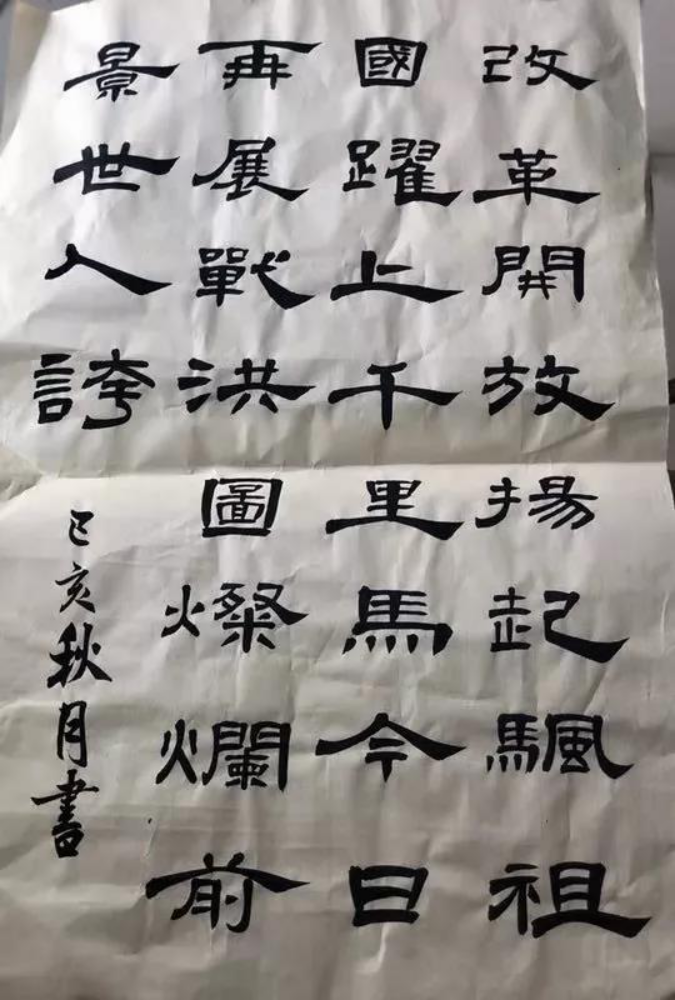 改革開放揚起颿祖
國躍上千里馬今日
再展戰洪圖燦爛前
景世人誇
己亥秋月書